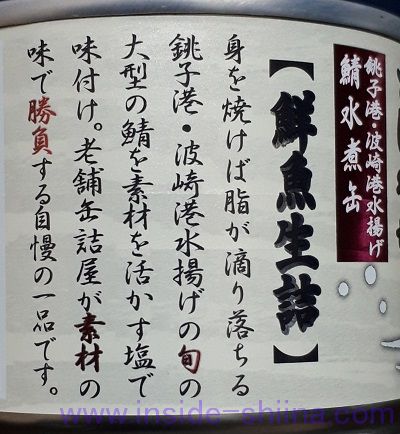 銚子港・波崎港水揚げ
鯖水煮缶
【鮮魚生詰】
身を焼けば脂が滴り落ちる
銚子港・波崎港水揚げの旬の
大型の鯖を素材を活かす塩で
味付け。老舗缶詰屋が素材の
味で勝負する自慢の一品です。
www.inside-shiina.com